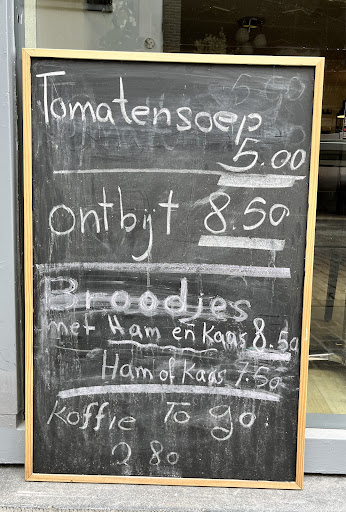 Tomatensoep
5.00
ontbijt 8.50
Broodjes
met Ham en Kaas 8.50
Ham of Kaas 7.50
Koffie To go
2 80